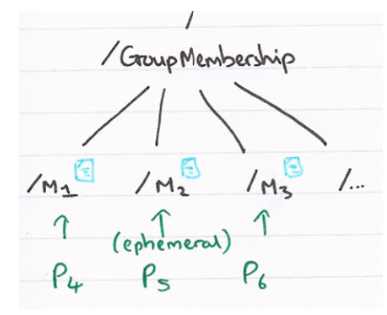 /
/GroupMembership
/M1 /M2 /M3 /...
(ephemeral)
P4 P5 P6